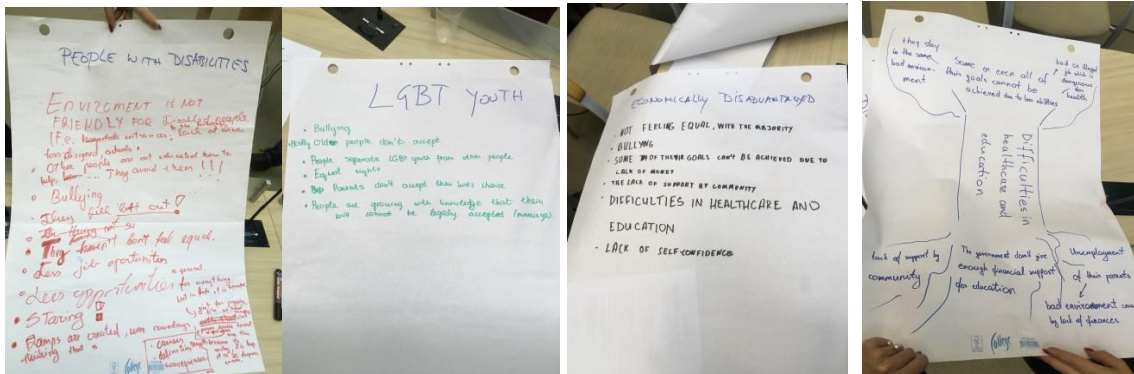 PEOPLE WITH DISABILITIES
ENVIROMENT IS NOT
FRIENDLY FOR people
(F.e. entrances.
schools
Other people are not educated how to
help, They avoid them!!!
Bullying
They feel left out!
They don't feel equal.
Less job oportunities
Less opportunities
in general.
STaring
Ramps are created, nowadays
thinking that
causes
consequences
College
LGBT YOUTH
Bullying
Mostly Older people don't accept
People separate LGBT youth from other people
Equal rights
Parents don't accept their kids choice
People are growing with knowledge that their
love cannot be legally accepted (marriage)
ECONOMICALLY DISADVANTAGED
NOT FEELING EQUAL, WITH THE MAJORITY
BULLYING
SOME OF THEIR GOALS CAN'T BE ACHIEVED DUE TO
LACK OF MONEY
THE LACK OF SUPPORT BY COMMUNITY
DIFFICULTIES IN HEALTHCARE AND
EDUCATION
LACK OF SELF-CONFIDENCE
they stay
in the same
bad environ-
ment
Some or even all of
their goals cannot be
achieved due to low abilities
bad or illegal
job which is
dangerous
for
health
Difficulties in
healthcare and
education
lack of support by
community
The government don't give
enough financial support
for education
Unemployment
of their parents
bad environment
by lack of finances
College